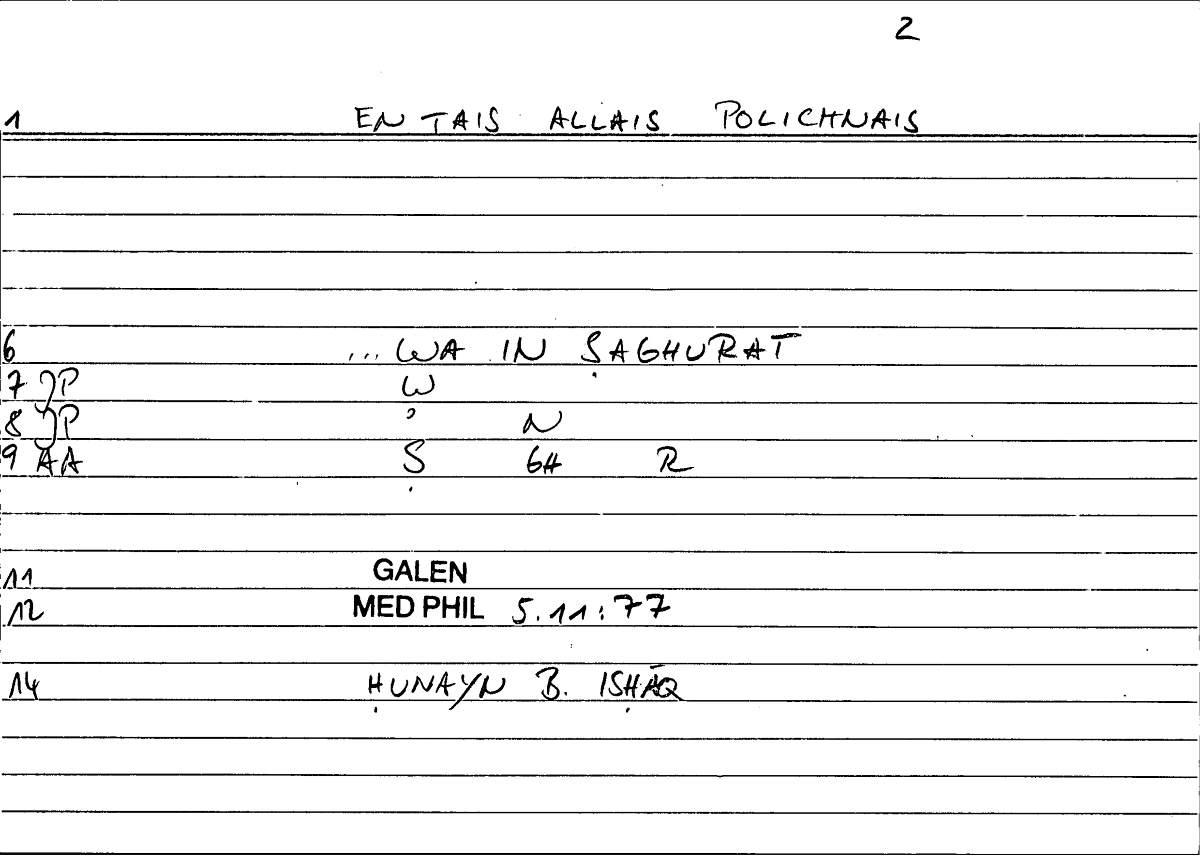 2
1 EN TAIS ALLAIS POLICHNAIS
6 ... WA IN ṢAGHURAT
7 JP W
8 JP ʾ N
9 AA Ṣ GH R
11 GALEN
12 MED PHIL 5.11:77
14 ḤUNAYN B. ISḤĀQ